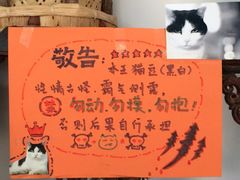 敬告：☆☆☆☆☆
水玉猫豆(黑白)
性情古怪，霸气侧露，
勿动、勿摸、勿抱！
否则后果自行承担